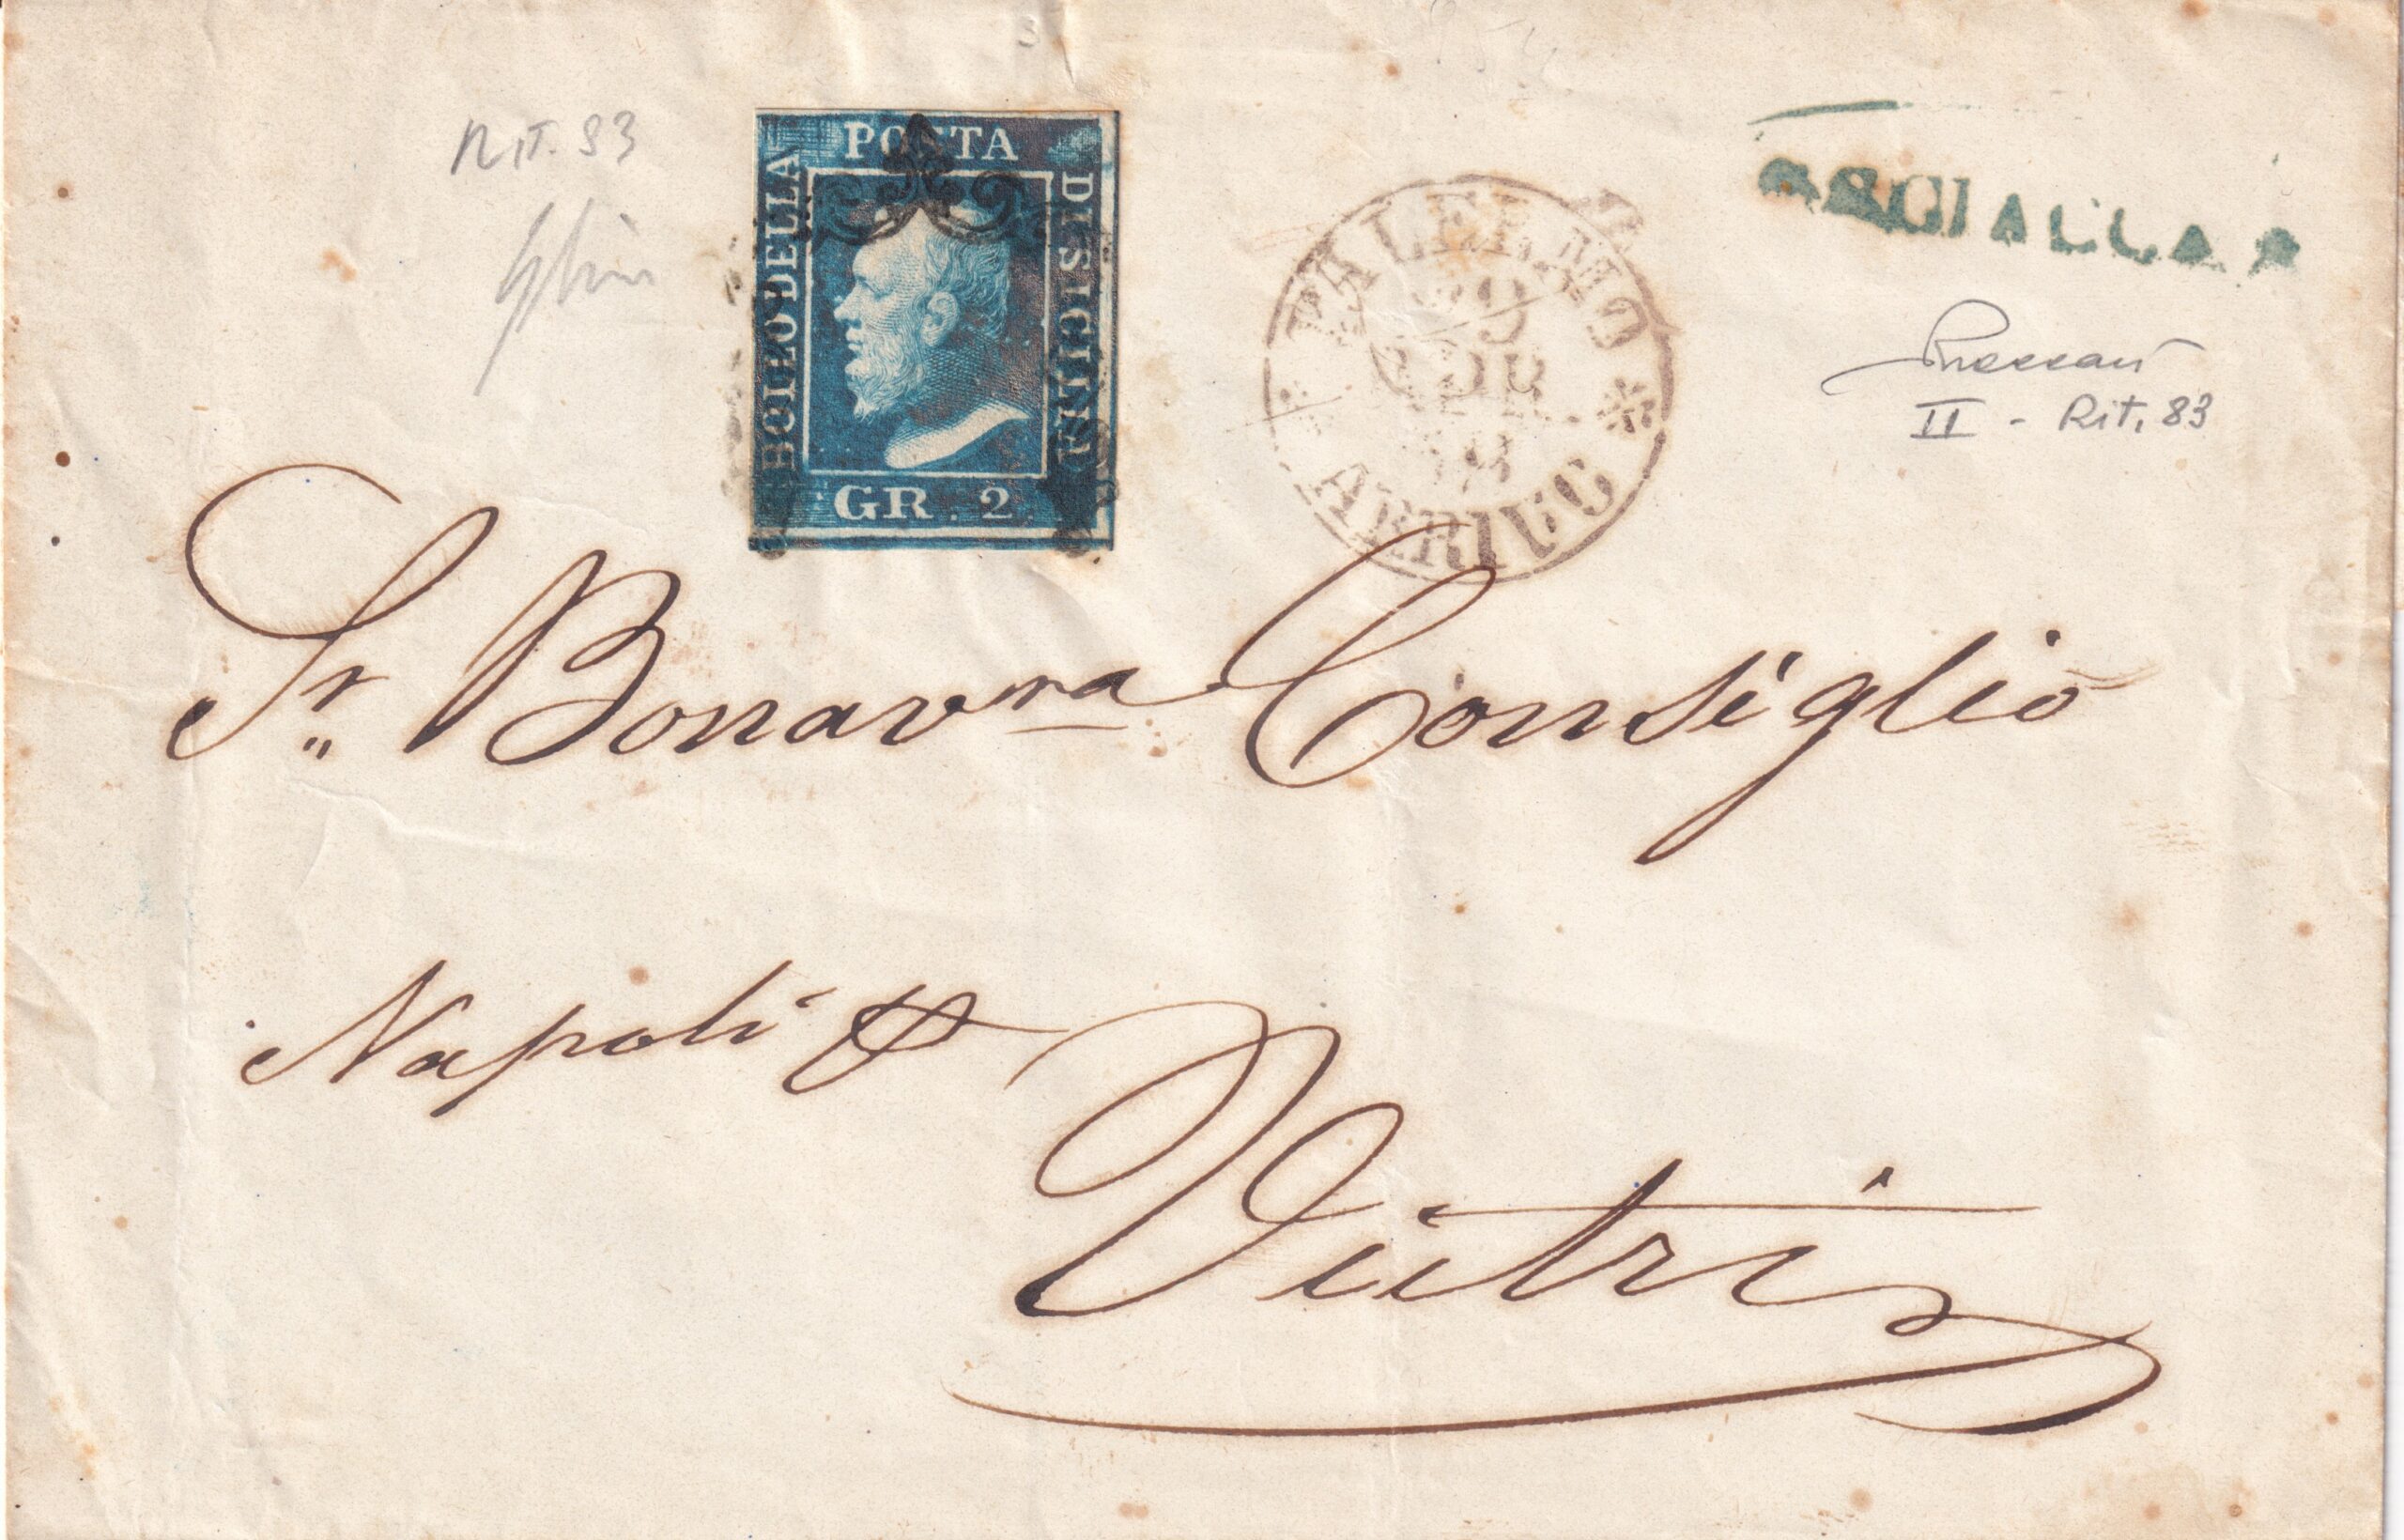 Rit. 83
POSTA
BOLLO DELLA
DI SICILIA
GR. 2
PALERMO
ARRIVO
II - Rit. 83
Sr. Bonavra Consiglio
Napoli
Vietri